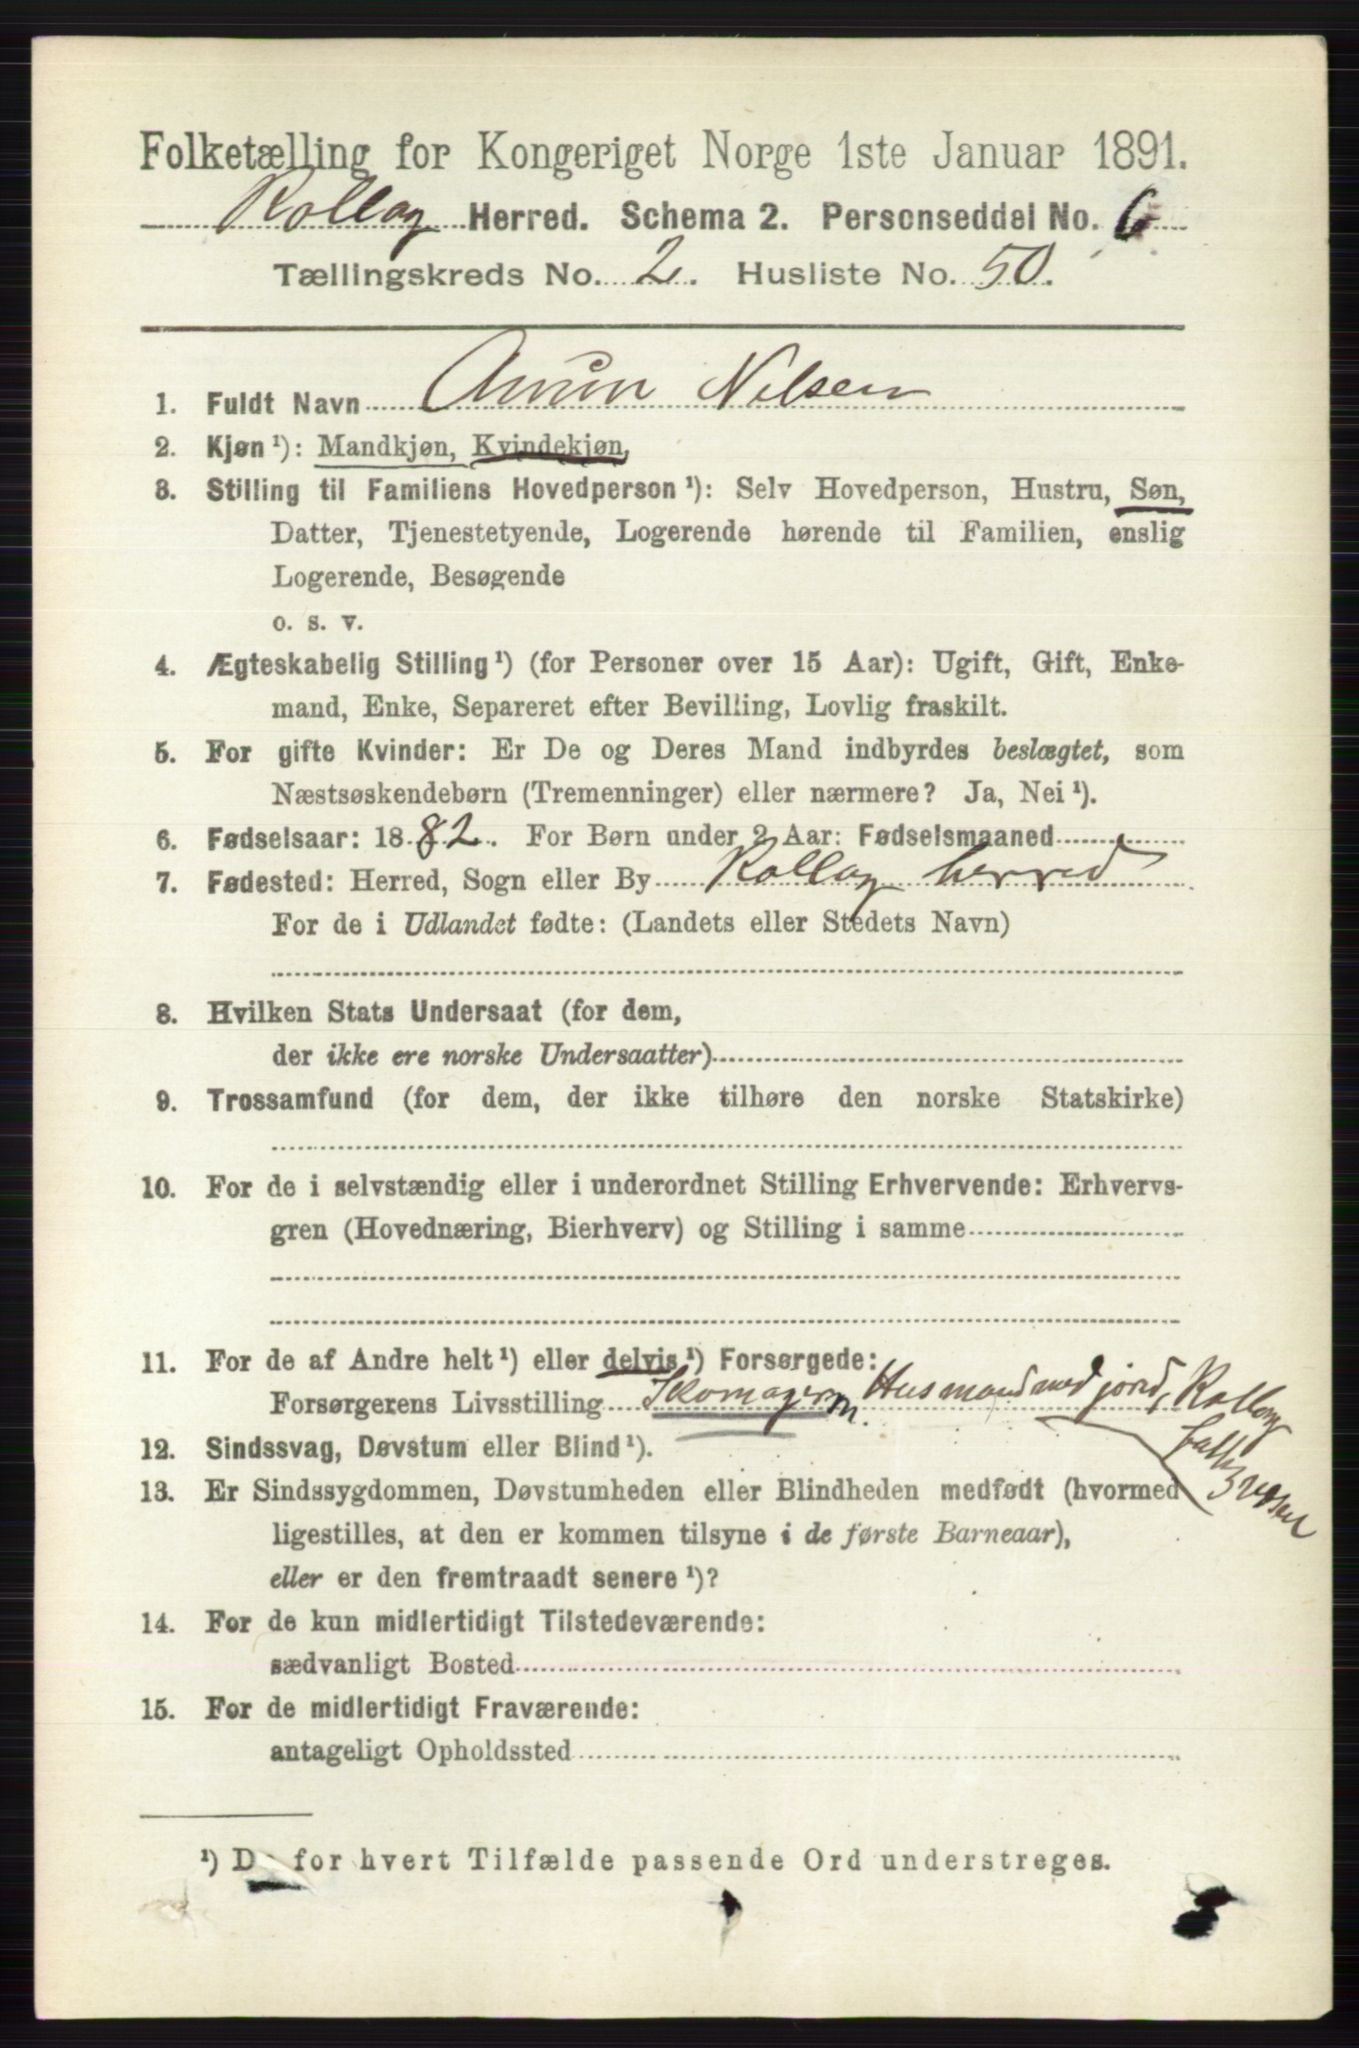 Folketælling for Kongeriget Norge 1ste Januar 1891.
Rollag Herred. Schema 2. Personseddel No. 6
Tællingskreds No. 2. Husliste No. 50.
1. Fuldt Navn Anun Nilsen
2. Kjøn¹): Mandkjøn, Kvindekjøn,
3. Stilling til Familiens Hovedperson¹): Selv Hovedperson, Hustru, Søn,
Datter, Tjenestetyende, Logerende hørende til Familien, enslig
Logerende, Besøgende
o. s. v.
4. Ægteskabelig Stilling¹) (for Personer over 15 Aar): Ugift, Gift, Enke-
mand, Enke, Separeret efter Bevilling, Lovlig fraskilt.
5. For gifte Kvinder: Er De og Deres Mand indbyrdes beslægtet, som
Næstsøskendebørn (Tremenninger) eller nærmere? Ja, Nei¹).
6. Fødselsaar: 1882. For Børn under 2 Aar: Fødselsmaaned
7. Fødested: Herred, Sogn eller By Rollag herred
For de i Udlandet fødte: (Landets eller Stedets Navn)
8. Hvilken Stats Undersaat (for dem,
der ikke ere norske Undersaatter)
9. Trossamfund (for dem, der ikke tilhøre den norske Statskirke)
10. For de i selvstændig eller i underordnet Stilling Erhvervende: Erhvervs-
gren (Hovednæring, Bierhverv) og Stilling i samme
11. For de af Andre helt¹) eller delvis¹) Forsørgede:
Forsørgerens Livsstilling Skomager m. Husmand med jord, Rollag
12. Sindssvag, Døvstum eller Blind¹).
13. Er Sindssygdommen, Døvstumheden eller Blindheden medfødt (hvormed
ligestilles, at den er kommen tilsyne i de første Barneaar),
eller er den fremtraadt senere¹)?
14. For de kun midlertidigt Tilstedeværende:
sædvanligt Bosted
15. For de midlertidigt Fraværende:
antageligt Opholdssted
¹) De for hvert Tilfælde passende Ord understreges.